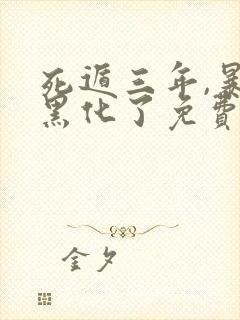 死遁三年,暴
黑化了免費
金夕